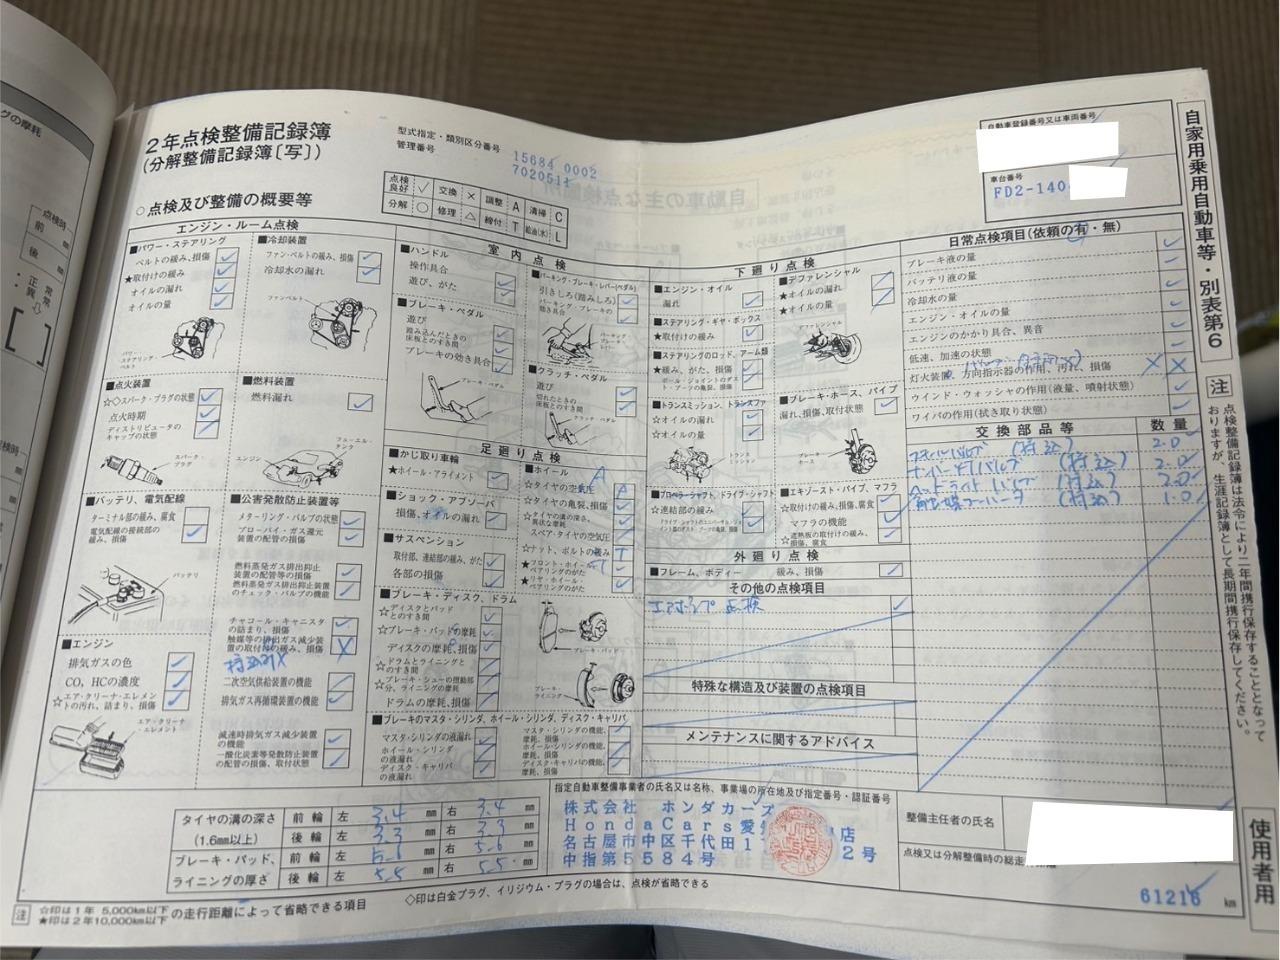 グの摩耗
点検時
前
後
正 異
常 常
2年点検整備記録簿
(分解整備記録簿〔写〕)
型式指定・類別区分番号
管理番号
15684 0002
7020511
自動車登録番号又は車両番号
車台番号
FD2-140
自家用乗用自動車等・別表第6
○点検及び整備の概要等
点検良好 ✓ 交換 × 調整 A 清掃 C
分解 ○ 修理 △ 締付 T 給油(水) L
エンジン・ルーム点検
■パワー・ステアリング
ベルトの緩み、損傷
★取付けの緩み
オイルの漏れ
オイルの量
パワー・ステアリング・ベルト
■冷却装置
ファン・ベルトの緩み、損傷
冷却水の漏れ
ファンベルト
■点火装置
☆◇スパーク・プラグの状態
点火時期
ディストリビュータのキャップの状態
スパーク・プラグ
■燃料装置
燃料漏れ
フューエル・タンク
エンジン
■バッテリ、電気配線
ターミナル部の緩み、腐食
電気配線の接続部の緩み、損傷
バッテリ
■公害発散防止装置等
メターリング・バルブの状態
ブローバイ・ガス還元装置の配管の損傷
燃料蒸発ガス排出抑止装置の配管等の損傷
燃料蒸発ガス排出抑止装置のチェック・バルブの機能
チャコール・キャニスタの詰まり、損傷
触媒等の排出ガス減少装置の取付けの緩み、損傷
二次空気供給装置の機能
排気ガス再循環装置の機能
減速時排気ガス減少装置の機能
一酸化炭素等発散防止装置の配管の損傷、取付状態
■エンジン
排気ガスの色
CO、HCの濃度
☆エア・クリーナ・エレメントの汚れ、詰まり、損傷
エア・クリーナ・エレメント
室内点検
■ハンドル
操作具合
遊び、がた
■ブレーキ・ペダル
遊び
踏み込んだときの床板とのすき間
ブレーキの効き具合
ブレーキ・ペダル
■パーキング・ブレーキ・レバー(ペダル)
引きしろ(踏みしろ)
パーキング・ブレーキの効き具合
パーキング・ブレーキ・レバー
■クラッチ・ペダル
遊び
切れたときの床板とのすき間
クラッチ・ペダル
足廻り点検
■かじ取り車輪
★ホイール・アライメント
■ショック・アブソーバ
損傷、オイルの漏れ
■サスペンション
取付部、連結部の緩み、がた
各部の損傷
■ホイール
☆タイヤの空気圧 A
☆タイヤの亀裂、損傷
☆タイヤの溝の深さ、異状な摩耗
スペア・タイヤの空気圧
☆ナット、ボルトの緩み T
★フロント・ホイール・ベアリングのがた
★リヤ・ホイール・ベアリングのがた
■ブレーキ・ディスク、ドラム
☆ディスクとパッドとのすき間
☆ブレーキ・パッドの摩耗
ディスクの摩耗、損傷
☆ドラムとライニングとのすき間
☆ブレーキ・シューの摺動部分、ライニングの摩耗
ドラムの摩耗、損傷
ブレーキ・パッド
ブレーキ・ライニング
■ブレーキのマスタ・シリンダ、ホイール・シリンダ、ディスク・キャリパ
マスタ・シリンダの液漏れ
ホイール・シリンダの液漏れ
ディスク・キャリパの液漏れ
マスタ・シリンダの機能、摩耗、損傷
ホイール・シリンダの機能、摩耗、損傷
ディスク・キャリパの機能、摩耗、損傷
下廻り点検
■エンジン・オイル
漏れ
■ステアリング・ギヤ・ボックス
★取付けの緩み
■ステアリングのロッド、アーム類
★緩み、がた、損傷
ボール・ジョイントのダスト・ブーツの亀裂、損傷
■トランスミッション、トランスファ
☆オイルの漏れ
☆オイルの量
トランスミッション
■プロペラ・シャフト、ドライブ・シャフト
☆連結部の緩み
ドライブ・シャフトのユニバーサル・ジョイント部のダスト・ブーツの亀裂、損傷
■デファレンシャル
★オイルの漏れ
★オイルの量
デファレンシャル
■ブレーキ・ホース、パイプ
漏れ、損傷、取付状態
ブレーキ・ホース
■エキゾースト・パイプ、マフラ
☆取付けの緩み、損傷、腐食
マフラの機能
☆遮熱板の取付けの緩み、損傷、腐食
外廻り点検
■フレーム、ボディー 緩み、損傷
その他の点検項目
エアポンプ 点検
特殊な構造及び装置の点検項目
メンテナンスに関するアドバイス
日常点検項目(依頼の有・無)
ブレーキ液の量
バッテリ液の量
冷却水の量
エンジン・オイルの量
エンジンのかかり具合、異音
低速、加速の状態
灯火装置、方向指示器の作用、汚れ、損傷
ウインド・ウォッシャの作用(液量、噴射状態)
ワイパの作用(拭き取り状態)
交換部品等 数量
(持込) 2.0
ナンバー灯バルブ (持込) 2.0
ヘッドライトバルブ (持込) 2.0
(持込) 1.0
注 点検整備記録簿は法令により二年間携行保存することとなっておりますが、生涯記録簿として長期間携行保存してください。
タイヤの溝の深さ 前輪 左 3.4 mm 右 3.4 mm
(1.6mm以上) 後輪 左 3.3 mm 右 3.3 mm
ブレーキ・パッド、 前輪 左 mm 右 5.6 mm
ライニングの厚さ 後輪 左 5.5 mm 右 5.5 mm
指定自動車整備事業者の氏名又は名称、事業場の所在地及び指定番号・認証番号
株式会社 ホンダカーズ
HondaCars愛 店
名古屋市中区千代田1 2号
中指第5584号
整備主任者の氏名
点検又は分解整備時の総走行距離
61216 km
使用者用
注 ☆印は1年 5,000km以下
★印は2年10,000km以下 の走行距離によって省略できる項目
◇印は白金プラグ、イリジウム・プラグの場合は、点検が省略できる